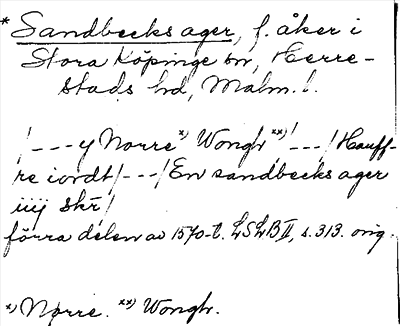 * Sandbecks ager, f. åker i
Stora Köpinge sn, Herre-
stads hd, Malm. l.
/---y Norre *) Wongh **) /---/ Hauff-
re iordt /---/ En sandbecks ager
iiij skr /
förra delen av 1570-t. LSLB II, s. 313. orig.
*) Nørre. **) Wongh.